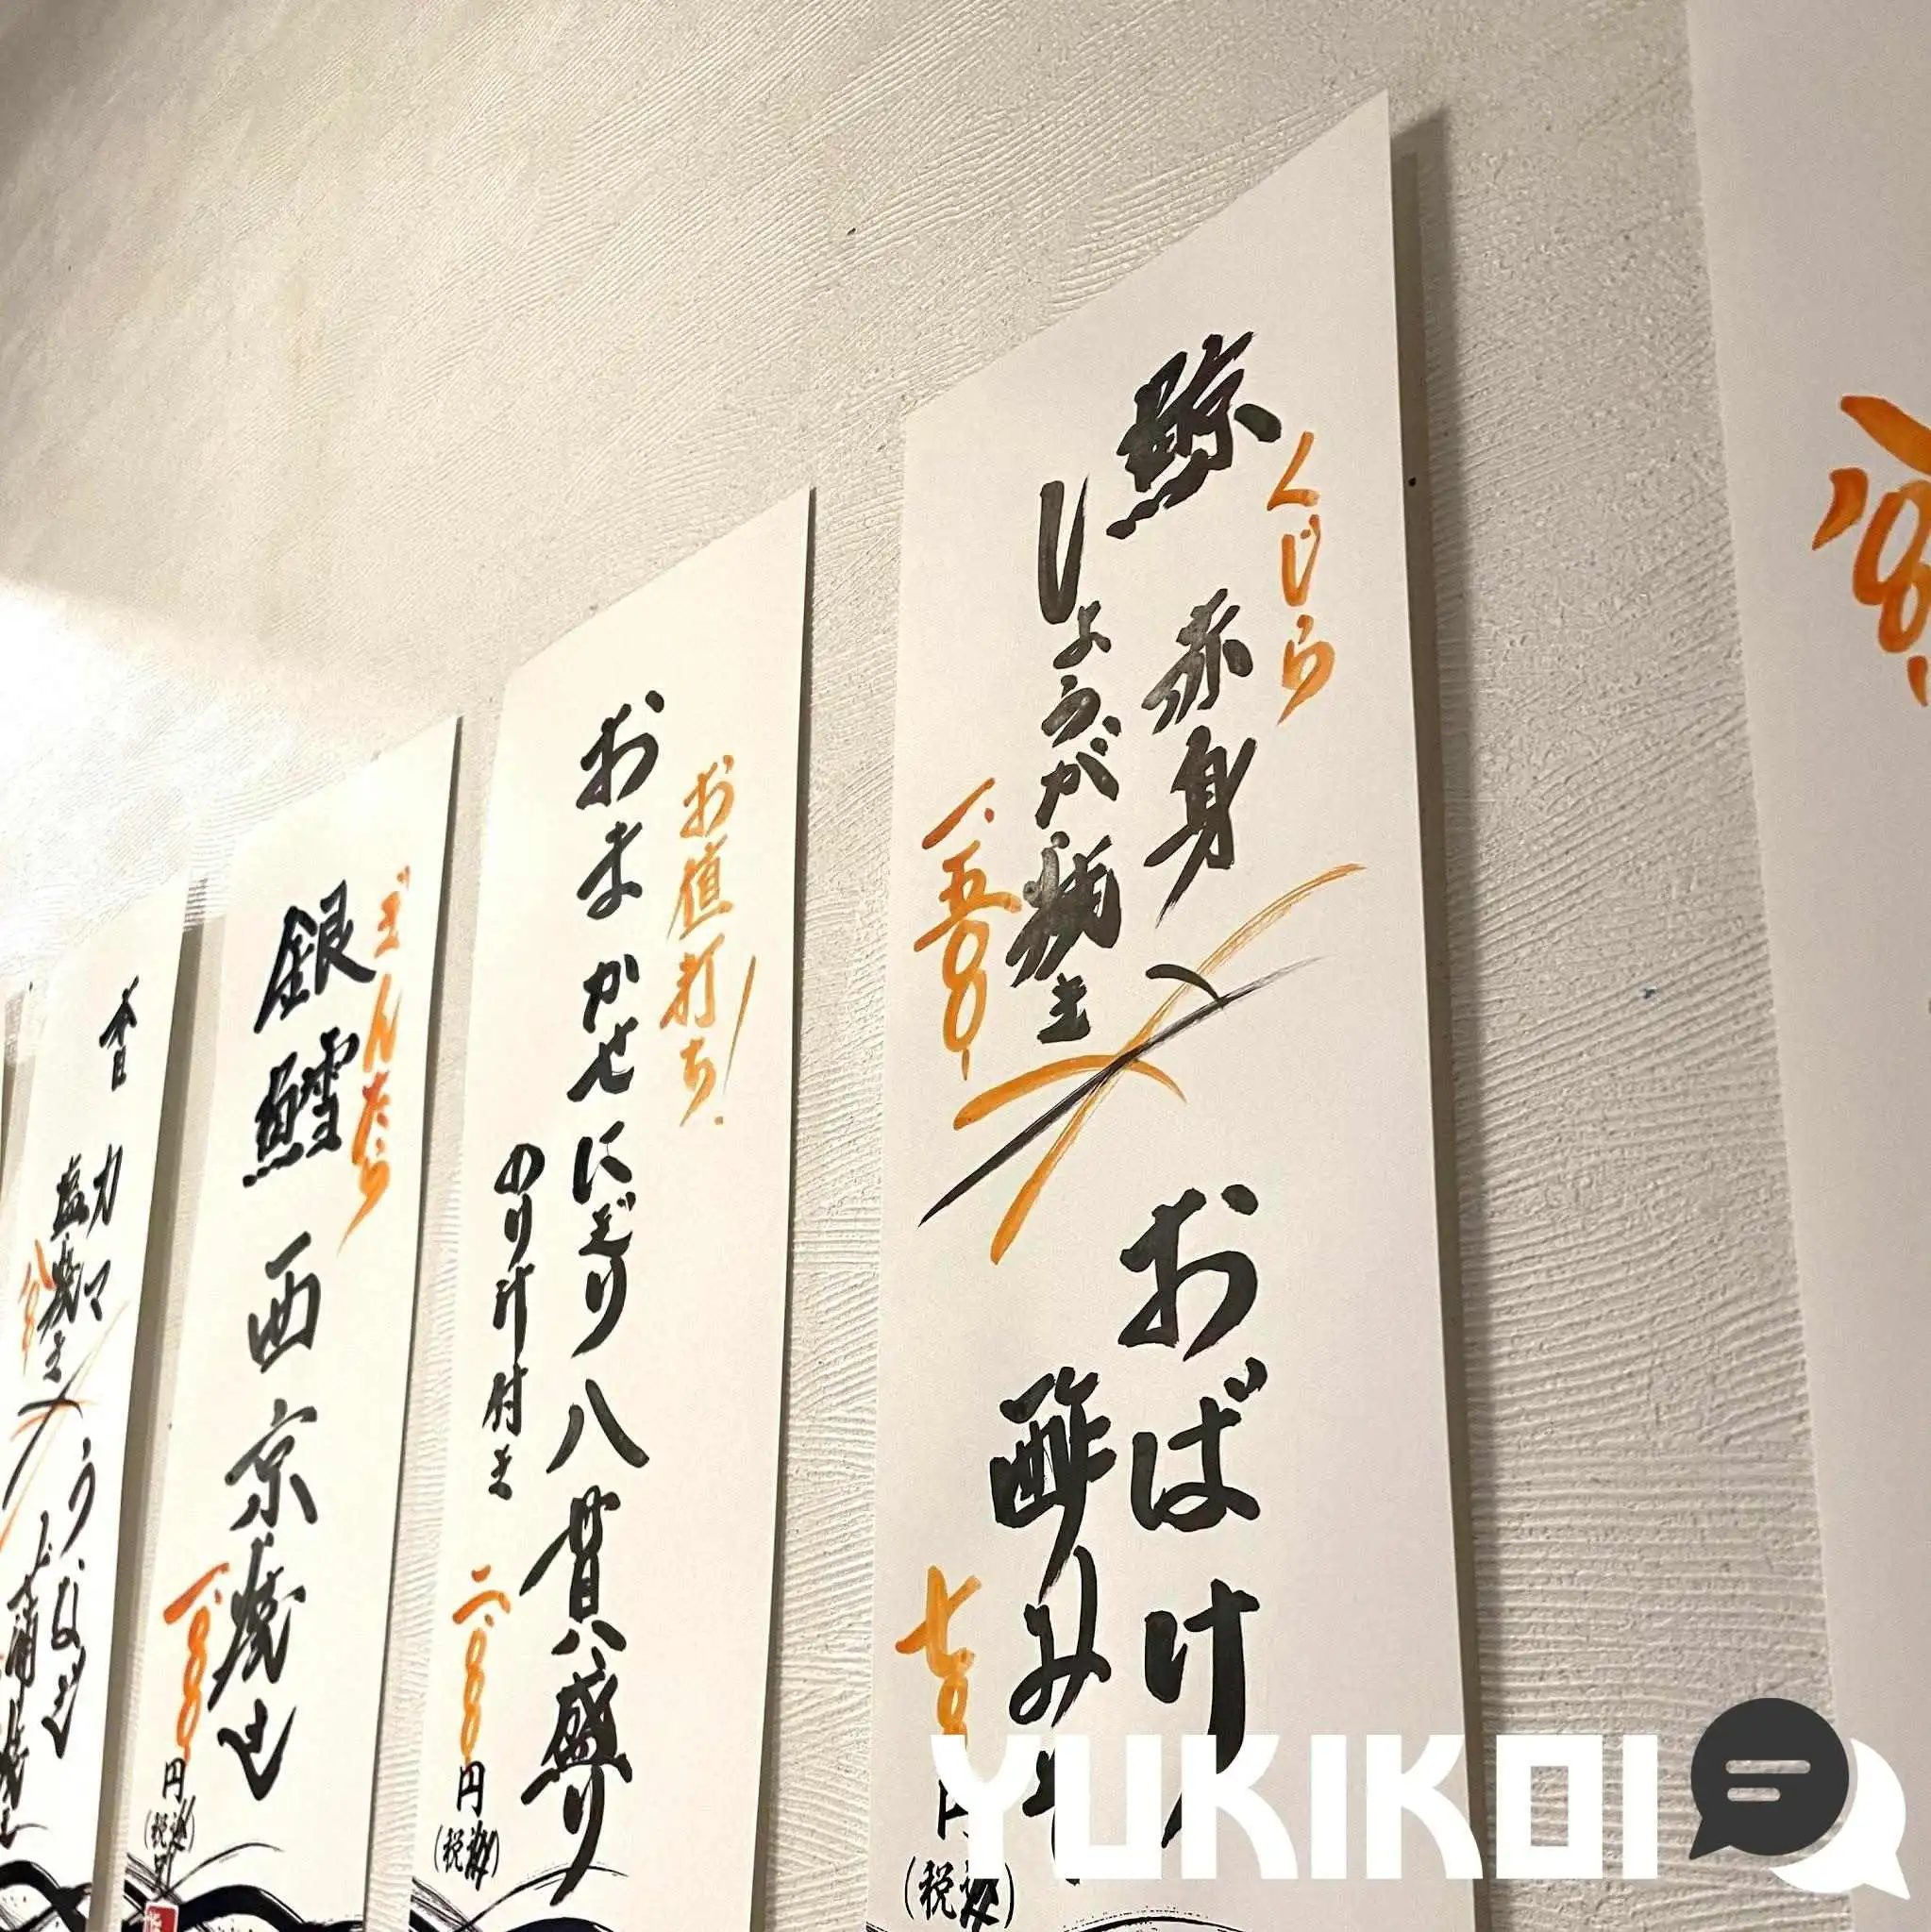 くじら
鯨 赤身
しょうが焼き
一、五〇〇
おばけ
酢みそ
七〇〇
円
(税込)
お値打ち!
おまかせにぎり八貫盛り
のり汁付き
二、〇〇〇
円
(税込)
ぎんだら
銀鱈 西京焼せ
一、八〇〇
円
(税込)
カマ
塩焼き
うなぎ
上蒲焼き
YUKIKOI